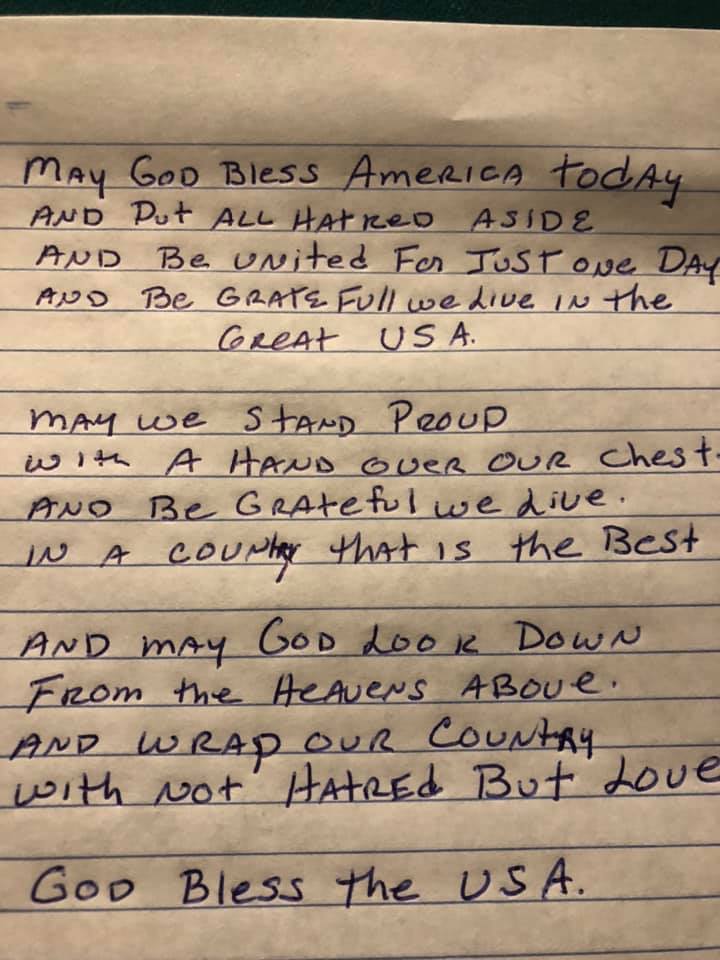 MAY GOD Bless AMERICA todAy
AND Put ALL HAtReD ASIDE
AND Be UNited For JUST ONe DAy
AND Be GRATEFull we Live IN the
GReAt USA.
MAY we StAND PROUD
with A HAND OVER OUR Chest.
AND Be GRAteful we Live.
IN A COUNtry thAt is the Best
AND MAY GOD Look DOWN
FROM the HeAVENS ABOVe.
AND WRAP OUR COUNtRY
with NOt HAtREd But Love
GOD Bless the USA.